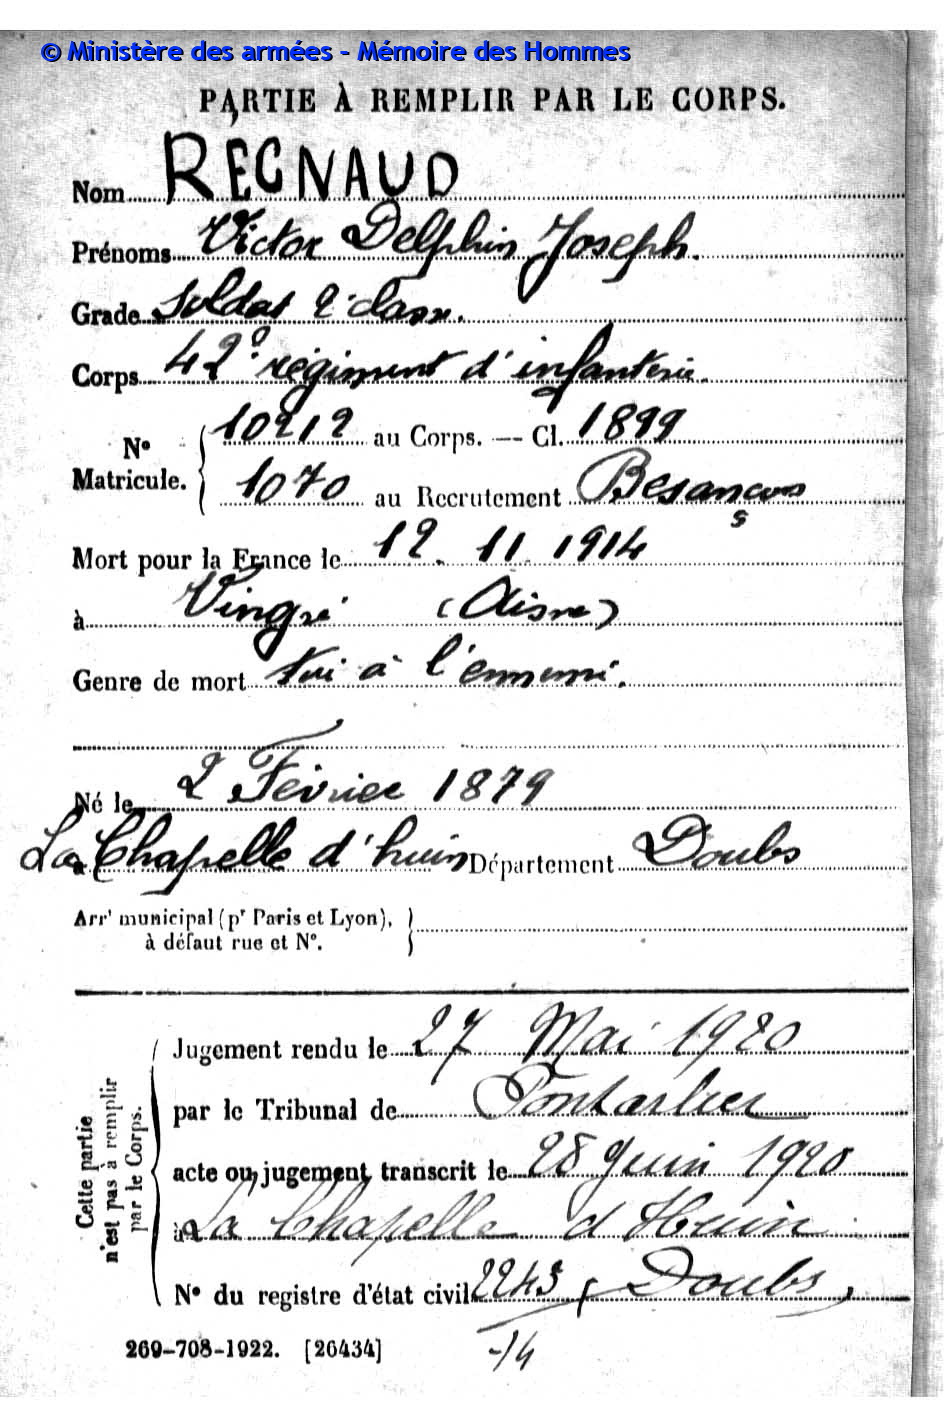 © Ministère des armées - Mémoire des Hommes
PARTIE À REMPLIR PAR LE CORPS.
Nom REGNAUD
Prénoms Victor Delphin Joseph.
Grade Soldat 2e classe.
Corps 42e régiment d'infanterie.
N° Matricule. 10212 au Corps. — Cl. 1899
1070 au Recrutement Besançon
Mort pour la France le 12. 11. 1914
à Vingré (Aisne)
Genre de mort tué à l'ennemi.
Né le 2 Février 1879
à La Chapelle d'huin Département Doubs
Arrt municipal (pr Paris et Lyon),
à défaut rue et N°.
Cette partie n'est pas à remplir par le Corps.
Jugement rendu le 27 Mai 1920
par le Tribunal de Pontarlier
acte ou jugement transcrit le 28 Juin 1920
à La Chapelle d'Huin
N° du registre d'état civil 2243 (Doubs)
269-708-1922. [26434] -14